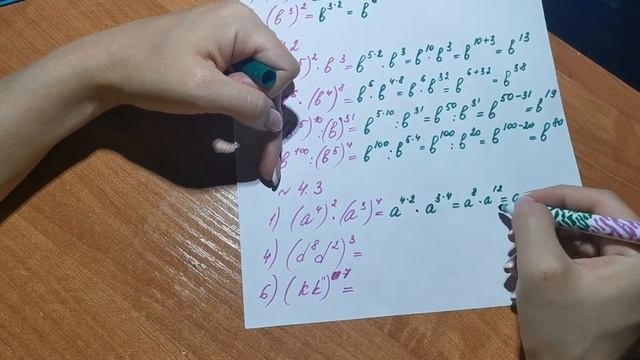 (b³)² = b³·² = b⁶
)² · b³ = b⁵·² · b³ = b¹⁰ · b³ = b¹⁰⁺³ = b¹³
· (b⁴)⁸ = b⁶ · b⁴·⁸ = b⁶ · b³² = b⁶⁺³² = b³⁸
)¹⁰ : (b)³¹ = b⁵·¹⁰ : b³¹ = b⁵⁰ : b³¹ = b⁵⁰⁻³¹ = b¹⁹
b¹⁰⁰ : (b⁵)⁴ = b¹⁰⁰ : b⁵·⁴ = b¹⁰⁰ : b²⁰ = b¹⁰⁰⁻²⁰ = b⁸⁰
~ 4.3
1) (a⁴)² · (a³)⁴ = a⁴·² · a³·⁴ = a⁸ · a¹² =
4) (d⁸d²)³ =
6) (kk¹¹)⁷ =